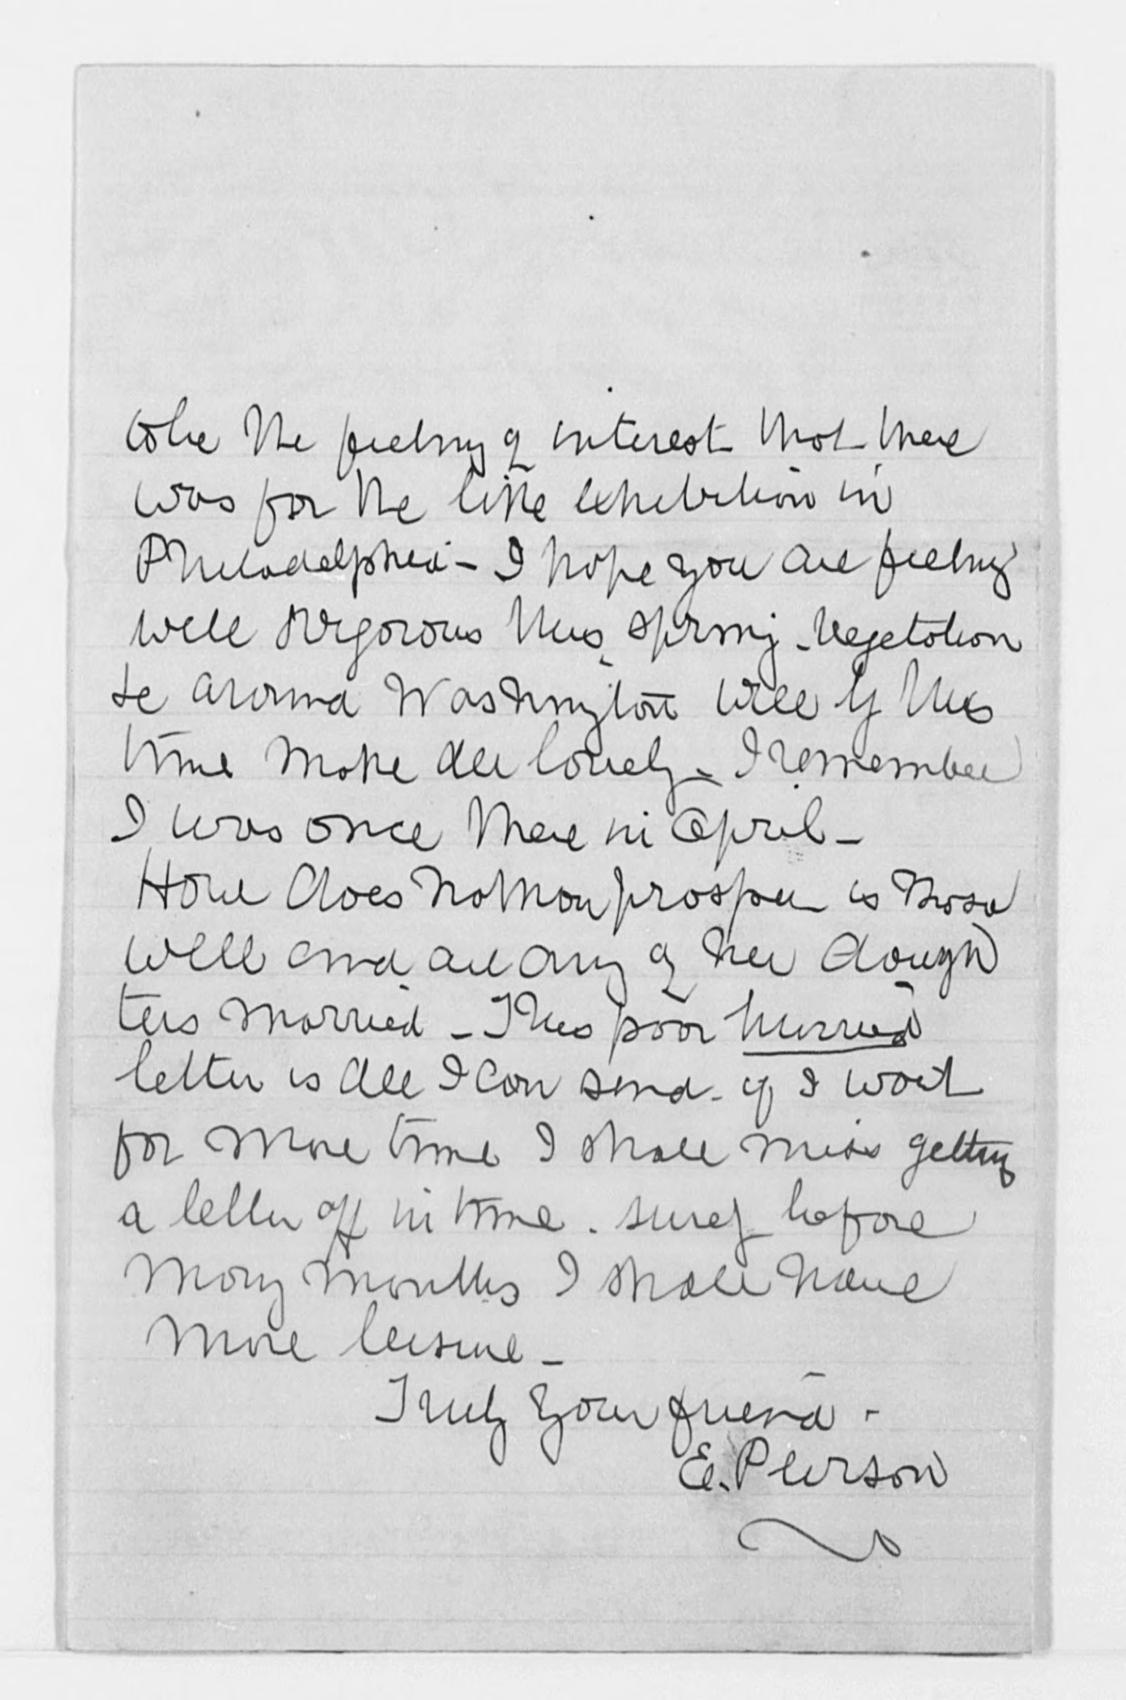 to be the feeling of interest that there
was for the like exhibition in
Philadelphia - I hope you are feeling
well & vigorous this spring - Vegetation
&c around Washington will by this
time make all lovely - I remember
I was once there in April -
How does Nathan prosper is Rosa
well and are any of her daugh
ters married - This poor hurried
letter is all I can send - if I wait
for more time I shall miss getting
a letter off in time. surely before
many months I shall have
more leisure -
Truly your friend -
E. Pierson